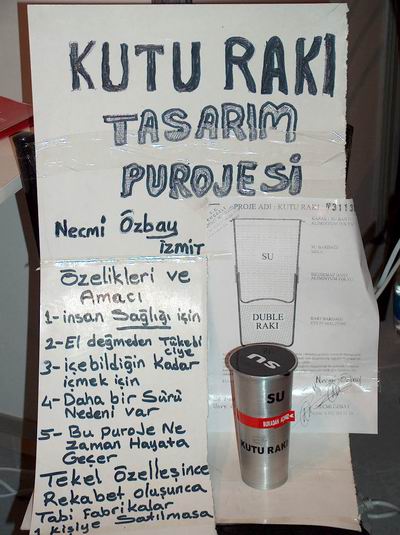 KUTU RAKI
TASARIM
PUROJESİ
Necmi Özbay
İZMİT
Özelikleri ve
Amacı
1- insan Sağlığı için
2- El değmeden Tükebi
ciye
3- içebildiğin Kadar
içmek için
4- Daha bir Sürü
Nedeni var
5- Bu PuroJe Ne
Zaman Hayata
Geçer
Tekel Özelleşince
Rekabet Oluşunca
Tabi Fabrikalar
1 Kişiye Satılmasa
PROJE ADI : KUTU RAKI
SU
DUBLE
RAKI
SU BARDAĞI
RAKI BARDAĞI
Necmi Özbay
SU
SU
BURADAN AÇINIZ
KUTU RAKI